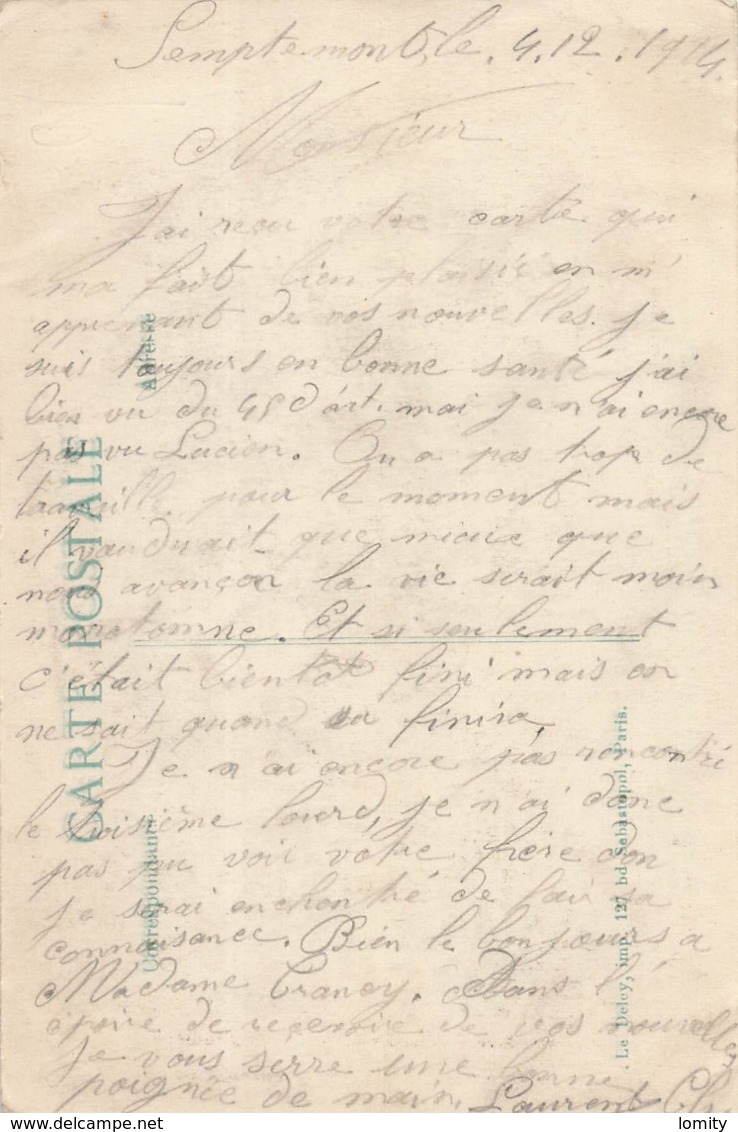 Semptemont, le. 4.12.1914.
Monsieur
J'ai reçu votre carte qui
ma fait bien plaisir en m'
apprenant de vos nouvelles. Je
suis toujours en bonne santé j'ai
bien vu du 45 d'art. mai je n'ai encore
pas vu Lucien. On a pas trop de
travaille pour le moment mais
il vaudrait que mieux que
nous avançon la vie serait moin
monotomne. Et si seulement
c'était bientôt fini mais on
ne sait quand sa finira,
Je n'ai encore pas rencontré
le troisième lourd, je n'ai donc
pas pu voir votre frère don
je serai enchanté de fair sa
connaisance. Bien le bonjours a
Madame Crancy. Dans l'
espoire de recevoir de vos nouvelles
Je vous serre une bonne
poignée de main, Laurent Ch.
CARTE POSTALE
Correspondance
Adresse
Le Deley, imp. 127 bd Sébastopol, Paris.
delcampe.net
lomity